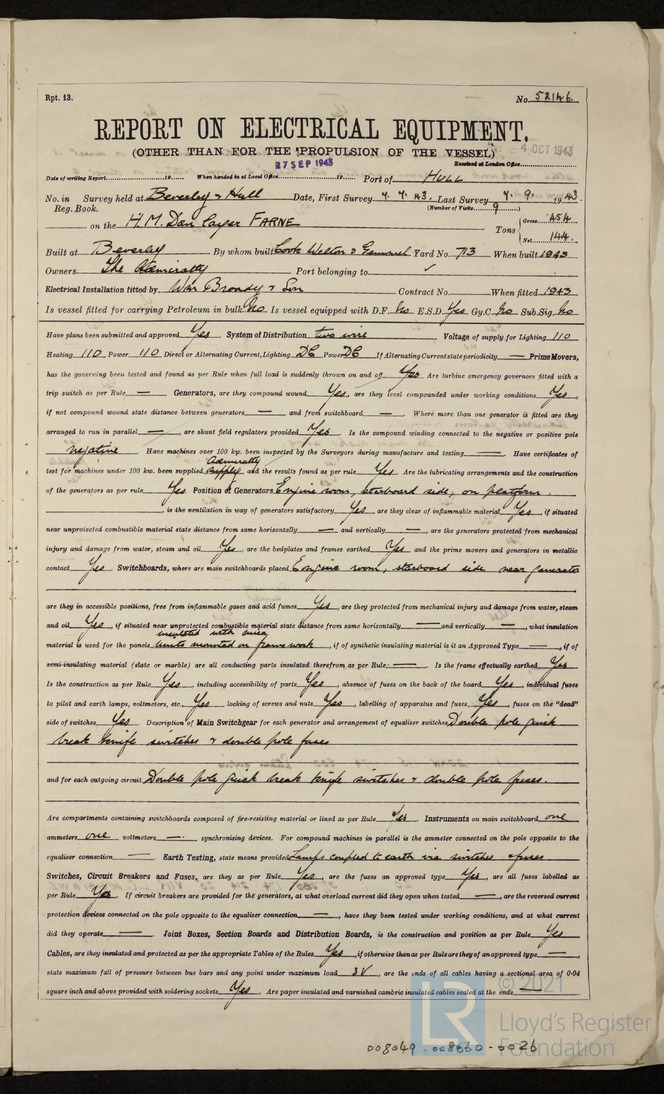 Rpt. 13.
No. 52146
REPORT ON ELECTRICAL EQUIPMENT.
(OTHER THAN FOR THE PROPULSION OF THE VESSEL)
27 SEP 1943
4 OCT 1943
Received at London Office
Date of writing Report 19 When handed in at Local Office 19 Port of HULL
No. in Survey held at Beverley & Hull Date, First Survey 7.7.43. Last Survey 7.9. 1943
Reg. Book. (Number of Visits 9 )
on the H.M. Dan Layer FARNE Tons { Gross 454
Net 144
Built at Beverley By whom built Cook Welton & Gemmell Yard No. 713 When built 1943
Owners The Admiralty Port belonging to ✓
Electrical Installation fitted by Wm Broady & Son Contract No. When fitted 1943
Is vessel fitted for carrying Petroleum in bulk No Is vessel equipped with D.F. No E.S.D. Yes Gy.C. No Sub.Sig. No
Have plans been submitted and approved Yes System of Distribution two wire Voltage of supply for Lighting 110
Heating 110 Power 110 Direct or Alternating Current, Lighting DC Power DC If Alternating Current state periodicity — Prime Movers,
has the governing been tested and found as per Rule when full load is suddenly thrown on and off Yes Are turbine emergency governors fitted with a
trip switch as per Rule — Generators, are they compound wound Yes, are they level compounded under working conditions Yes,
if not compound wound state distance between generators — and from switchboard — Where more than one generator is fitted are they
arranged to run in parallel —, are shunt field regulators provided Yes Is the compound winding connected to the negative or positive pole
negative Have machines over 100 kw. been inspected by the Surveyors during manufacture and testing — Have certificates of
test for machines under 100 kw. been supplied Admiralty and the results found as per rule Yes Are the lubricating arrangements and the construction
of the generators as per rule Yes Position of Generators Engine room, starboard side, on platform.
, is the ventilation in way of generators satisfactory Yes, are they clear of inflammable material Yes, if situated
near unprotected combustible material state distance from same horizontally — and vertically —, are the generators protected from mechanical
injury and damage from water, steam and oil Yes, are the bedplates and frames earthed Yes and the prime movers and generators in metallic
contact Yes Switchboards, where are main switchboards placed Engine room, starboard side near generator
are they in accessible positions, free from inflammable gases and acid fumes Yes, are they protected from mechanical injury and damage from water, steam
and oil Yes, if situated near unprotected combustible material state distance from same horizontally — and vertically —, what insulation
material is used for the panels insulated with mica units mounted on framework, if of synthetic insulating material is it an Approved Type —, if of
semi-insulating material (slate or marble) are all conducting parts insulated therefrom as per Rule — Is the frame effectually earthed Yes
Is the construction as per Rule Yes, including accessibility of parts Yes, absence of fuses on the back of the board Yes, individual fuses
to pilot and earth lamps, voltmeters, etc. Yes locking of screws and nuts Yes, labelling of apparatus and fuses Yes, fuses on the "dead"
side of switches Yes Description of Main Switchgear for each generator and arrangement of equaliser switches Double pole quick
break knife switches & double pole fuses
and for each outgoing circuit Double pole quick break knife switches & double pole fuses.
Are compartments containing switchboards composed of fire-resisting material or lined as per Rule Yes Instruments on main switchboard one
ammeters one voltmeters — synchronising devices. For compound machines in parallel is the ammeter connected to the pole opposite to the
equaliser connection — Earth Testing, state means provided Lamps coupled to earth via switches & fuses
Switches, Circuit Breakers and Fuses, are they as per Rule Yes, are the fuses an approved type Yes, are all fuses labelled as
per Rule Yes If circuit breakers are provided for the generators, at what overload current did they open when tested —, are the reversed current
protection devices connected on the pole opposite to the equaliser connection —, have they been tested under working conditions, and at what current
did they operate — Joint Boxes, Section Boards and Distribution Boards, is the construction and position as per Rule Yes
Cables, are they insulated and protected as per the appropriate Tables of the Rules Yes, if otherwise than as per Rule are they of an approved type —,
state maximum fall of pressure between bus bars and any point under maximum load 3V, are the ends of all cables having a sectional area of 0·04
square inch and above provided with soldering sockets Yes Are paper insulated and varnished cambric insulated cables sealed at the ends —
© 2021
LR
Lloyd's Register
Foundation
008049-008060-0026